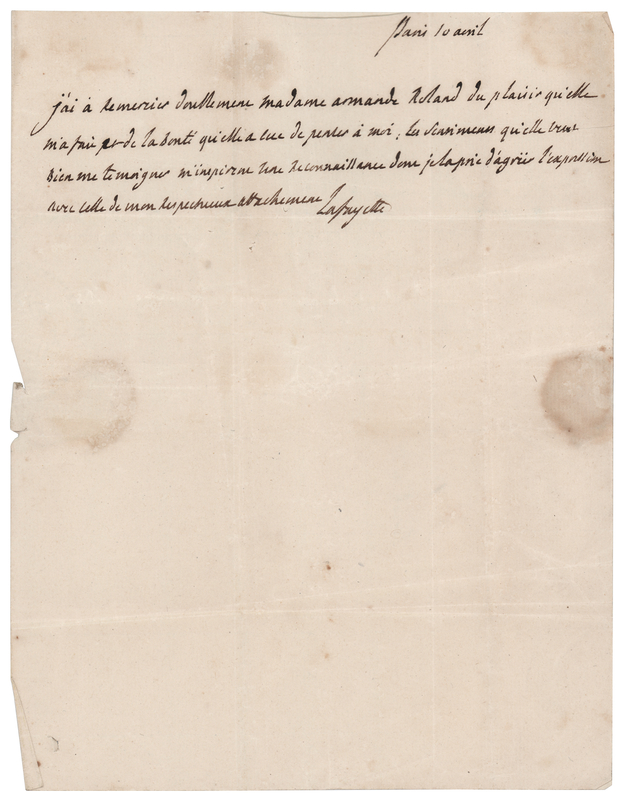 Paris 10 avril
j'ai à remercier doublement madame armande Roland du plaisir qu'elle
m'a fait et de la bonté qu'elle a eue de penser à moi; les sentimens qu'elle veut
bien me temoigner m'inspirent une reconnaissance dont je la prie d'agréer l'expression
avec celle de mon respectueux attachement Lafayette